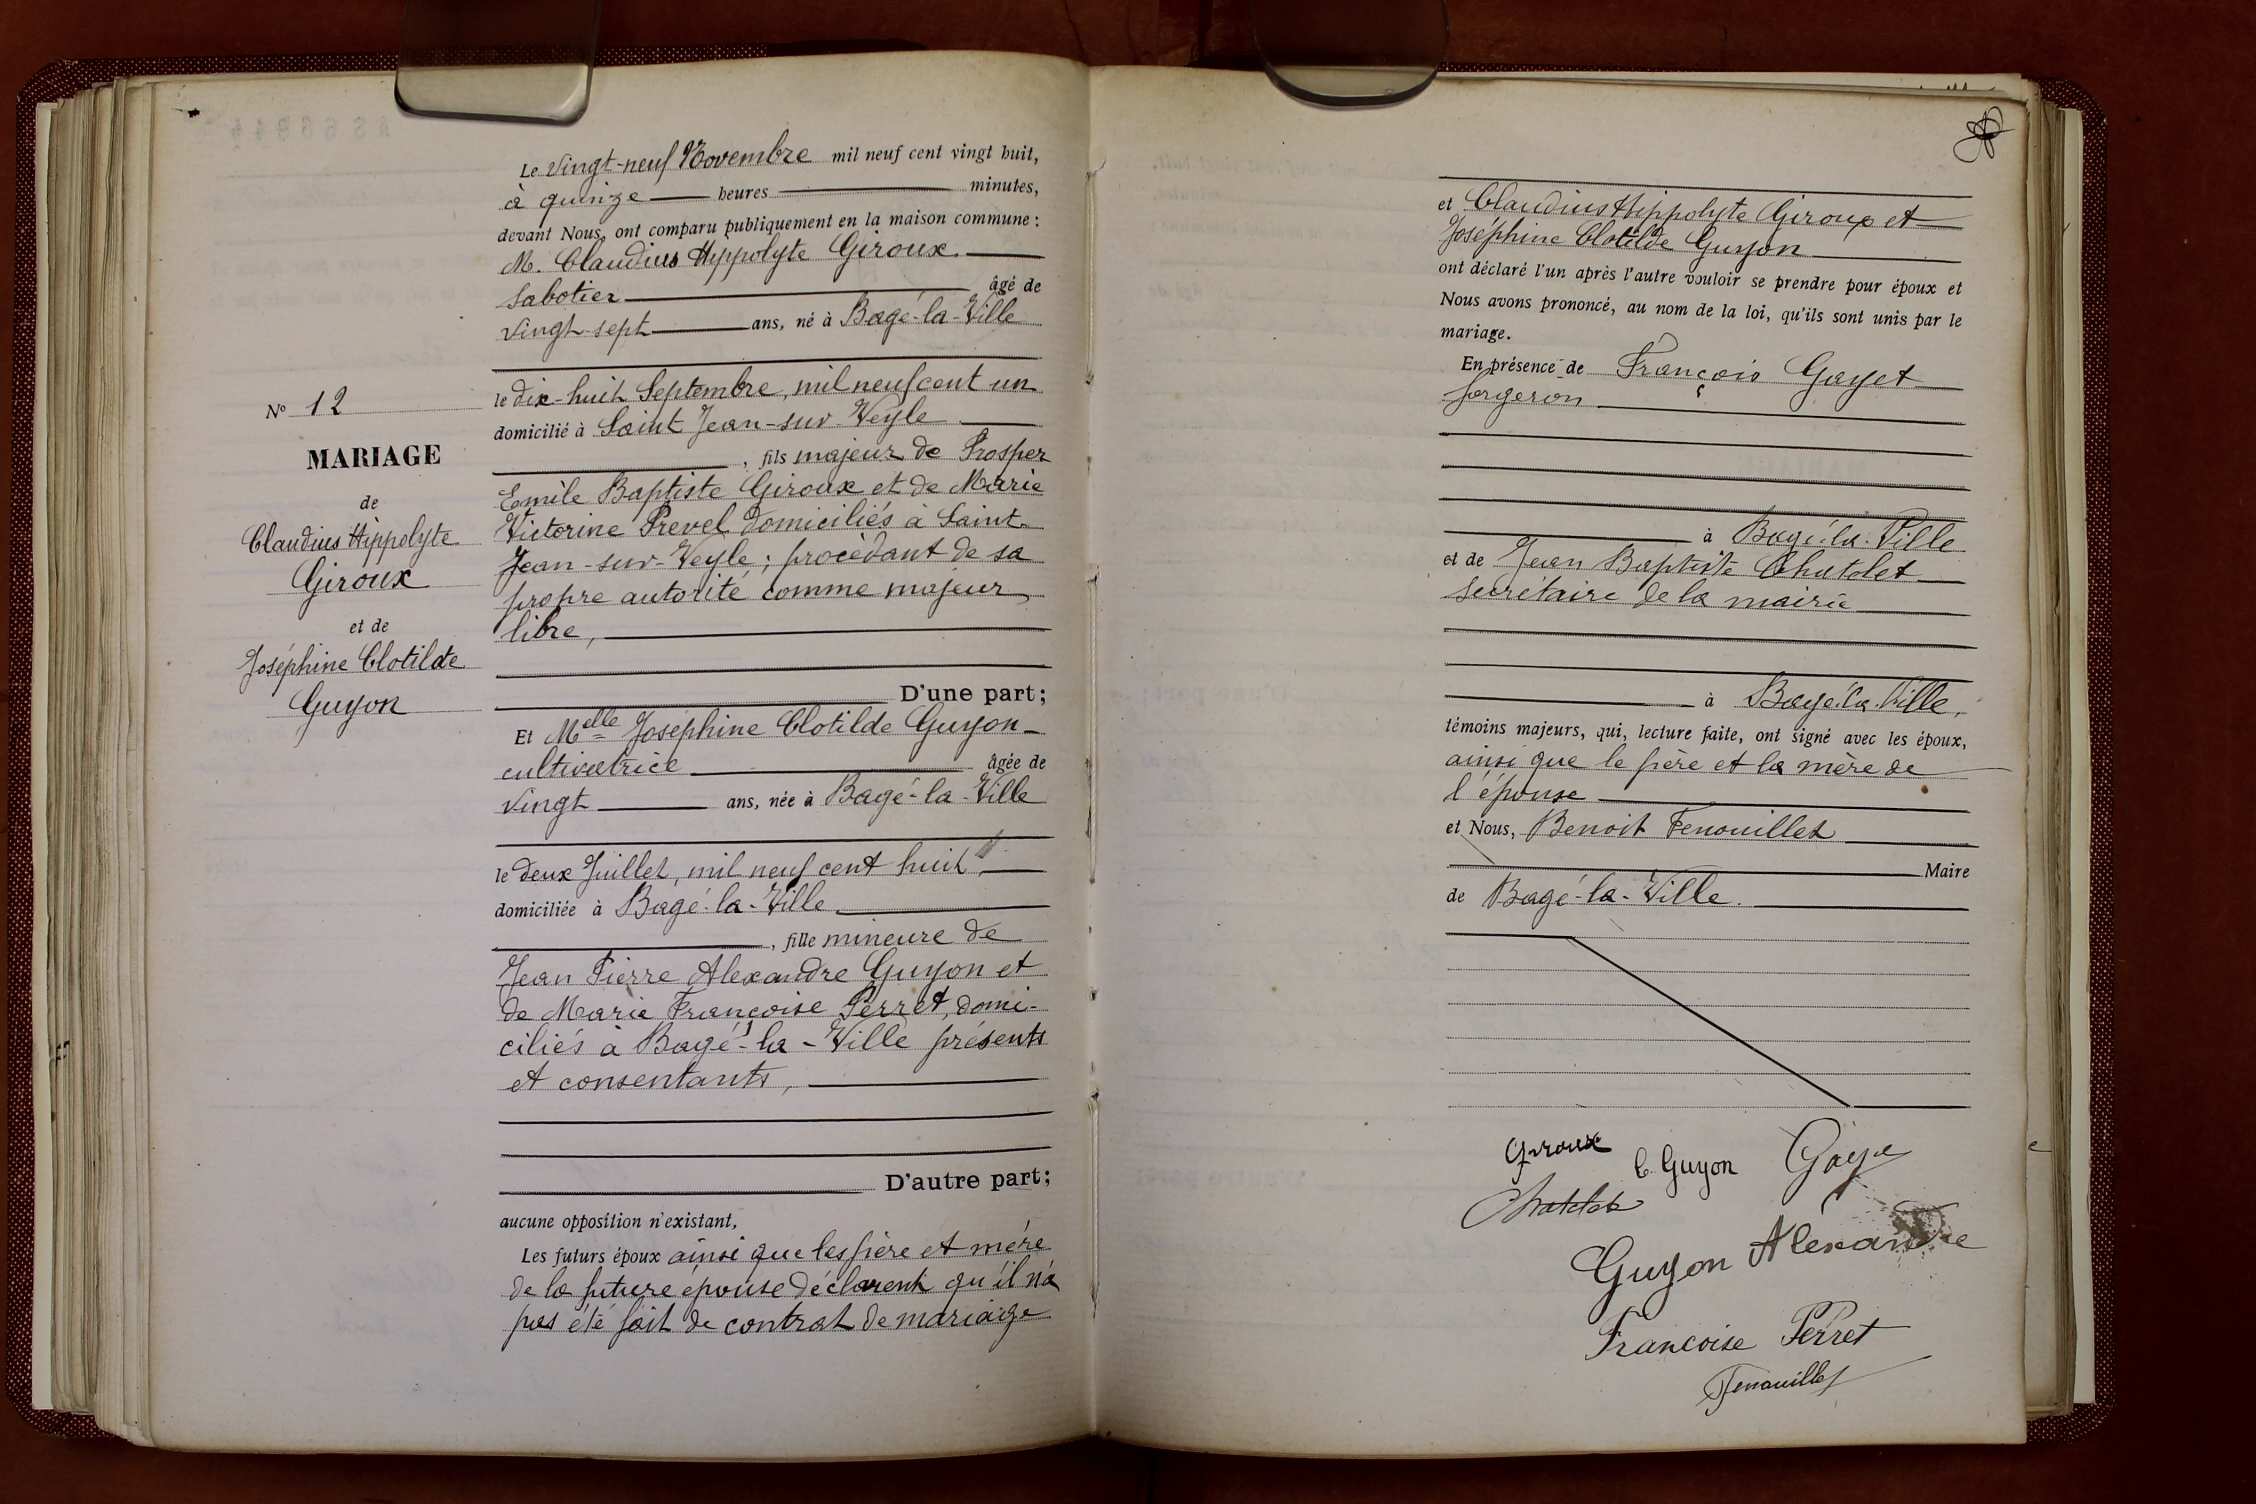 Le Vingt-neuf Novembre mil neuf cent vingt huit,
à quinze heures minutes,
devant Nous, ont comparu publiquement en la maison commune :
M. Claudius Hippolyte Giroux
Sabotier âgé de
vingt-sept ans, né à Bagé-la-Ville
le dix-huit Septembre, mil neuf cent un
domicilié à Saint Jean-sur-Veyle
, fils majeur de Prosper
Emile Baptiste Giroux et de Marie
Victorine Prevel domiciliés à Saint
Jean-sur-Veyle ; procédant de sa
propre autorité comme majeur
libre,
D'une part ;
Nº 12
MARIAGE
de
Claudius Hippolyte
Giroux
et de
Joséphine Clotilde
Guyon
Et Melle Joséphine Clotilde Guyon
cultivatrice âgée de
vingt ans, née à Bagé-la-Ville
le deux Juillet, mil neuf cent huit
domiciliée à Bagé-la-Ville
, fille mineure de
Jean Pierre Alexandre Guyon et
de Marie Françoise Perret, domi-
ciliés à Bagé-la-Ville présents
et consentants,
D'autre part ;
aucune opposition n'existant,
Les futurs époux ainsi que les père et mère
de la future épouse déclarent qu'il n'a
pas été fait de contrat de mariage
et Claudius Hippolyte Giroux et
Joséphine Clotilde Guyon
ont déclaré l'un après l'autre vouloir se prendre pour époux et
Nous avons prononcé, au nom de la loi, qu'ils sont unis par le
mariage.
En présence de François Gayet
forgeron
à Bagé-la-Ville
et de Jean Baptiste Chatelet
secrétaire de la mairie
à Bagé-la-Ville,
témoins majeurs, qui, lecture faite, ont signé avec les époux,
ainsi que le père et la mère de
l'épouse
et Nous, Benoit Fenouillet
Maire
de Bagé-la-Ville.
Giroux C. Guyon Gaye
Chatelet
Guyon Alexandre
Francoise Perret
Fenouillet